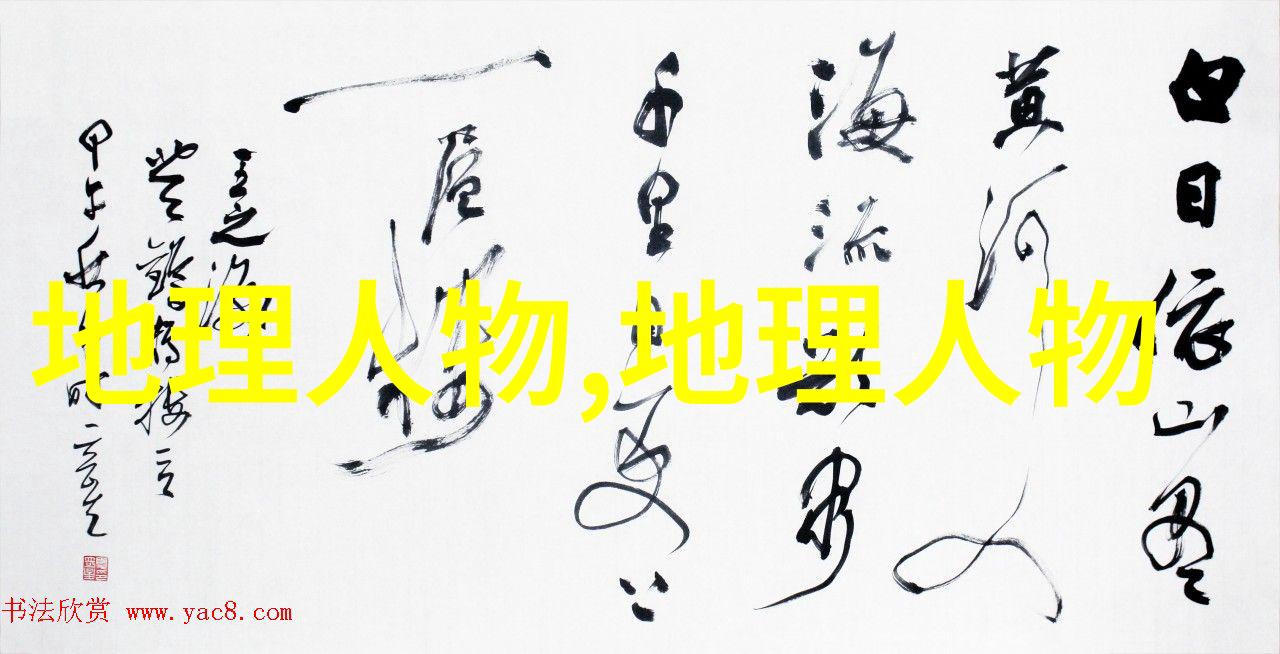 白日依山尽
黄河入
海流欲穷
千里目更上
一层楼
王之涣
登鹳雀楼
甲午秋
地理人物,地理人物
书法欣赏 www.yac8.com